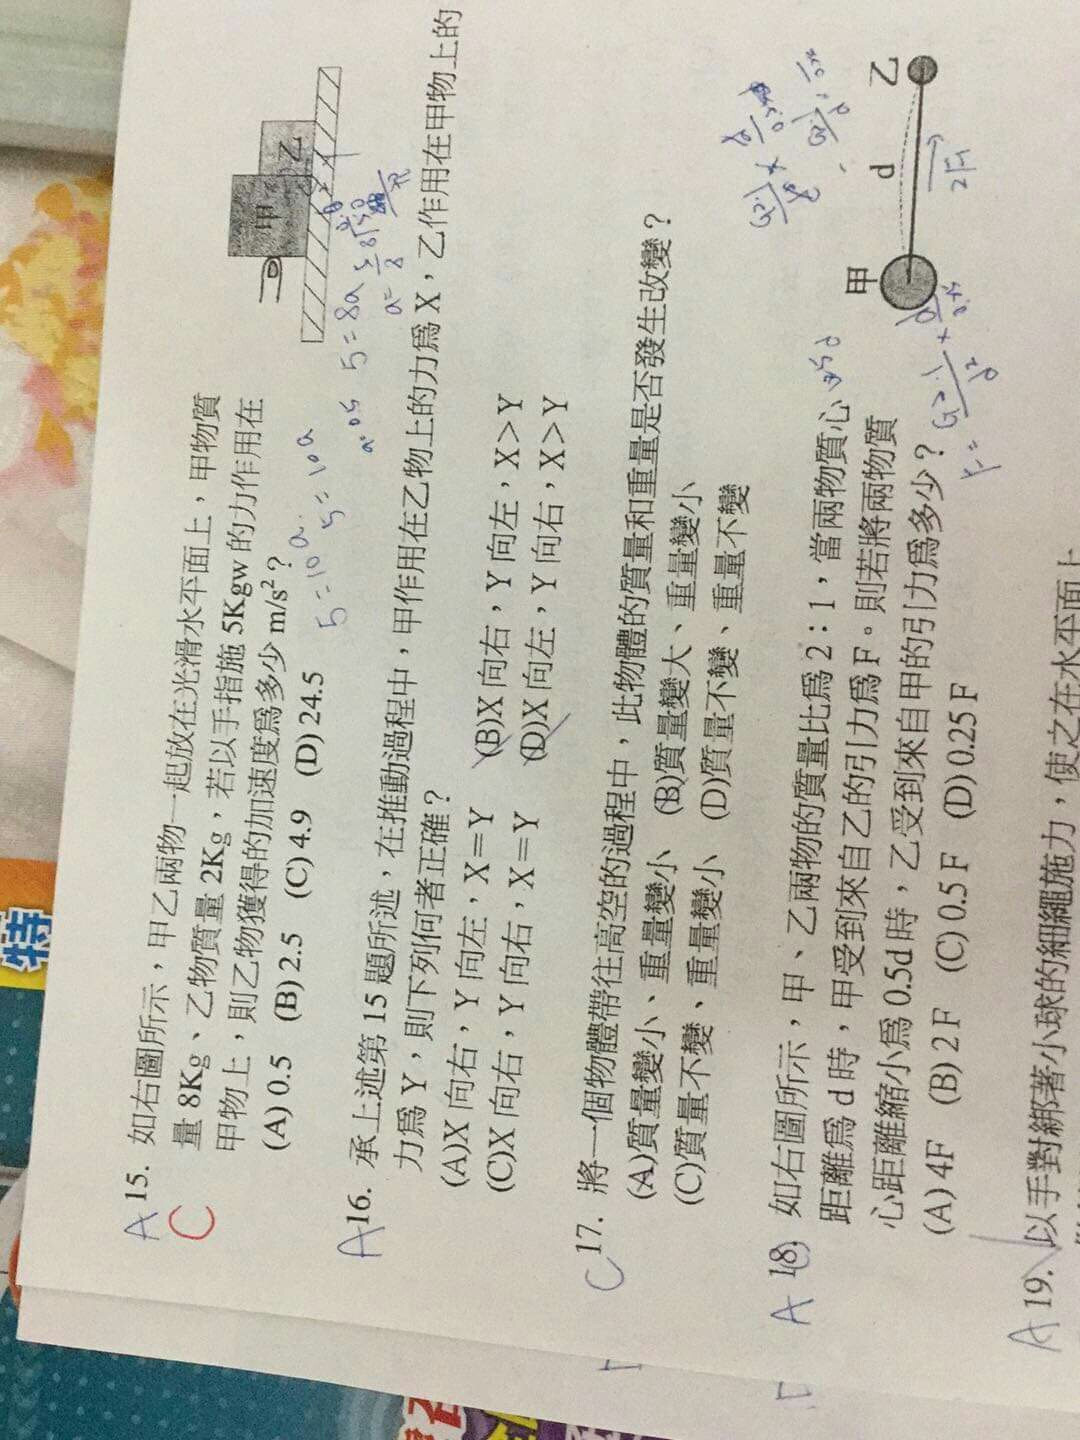 A 15. 如右圖所示，甲乙兩物一起放在光滑水平面上，甲物質
C 量 8Kg、乙物質量 2Kg，若以手指施 5Kgw 的力作用在
甲物上，則乙物獲得的加速度爲多少 m/s²？
(A) 0.5 (B) 2.5 (C) 4.9 (D) 24.5
甲
乙
5=10a
5=10a
5=8a
a=
A 16. 承上述第 15 題所述，在推動過程中，甲作用在乙物上的力爲 X，乙作用在甲物上的
力爲 Y，則下列何者正確？
(A)X 向右，Y 向左，X＝Y (B)X 向右，Y 向左，X＞Y
(C)X 向右，Y 向右，X＝Y (D)X 向左，Y 向右，X＞Y
C 17. 將一個物體帶往高空的過程中，此物體的質量和重量是否發生改變？
(A)質量變小、重量變小 (B)質量變大、重量變小
(C)質量不變、重量變小 (D)質量不變、重量不變
A 18. 如右圖所示，甲、乙兩物的質量比爲 2：1，當兩物質心
距離爲 d 時，甲受到來自乙的引力爲 F。則若將兩物質
心距離縮小爲 0.5d 時，乙受到來自甲的引力爲多少？
(A) 4F (B) 2F (C) 0.5F (D) 0.25F
甲
d
乙
2F
A 19. 以手對綁著小球的細繩施力，使之在水平面上
特